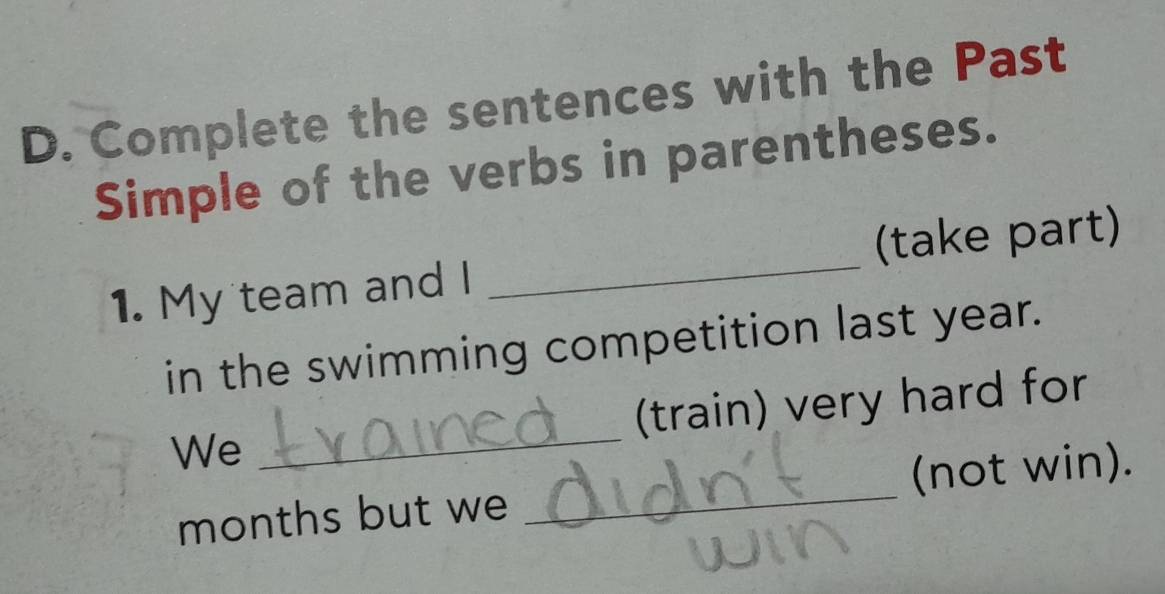 D. Complete the sentences with the Past
Simple of the verbs in parentheses.
1. My team and I ____________ (take part)
in the swimming competition last year.
We trained (train) very hard for
months but we didn't (not win).
win